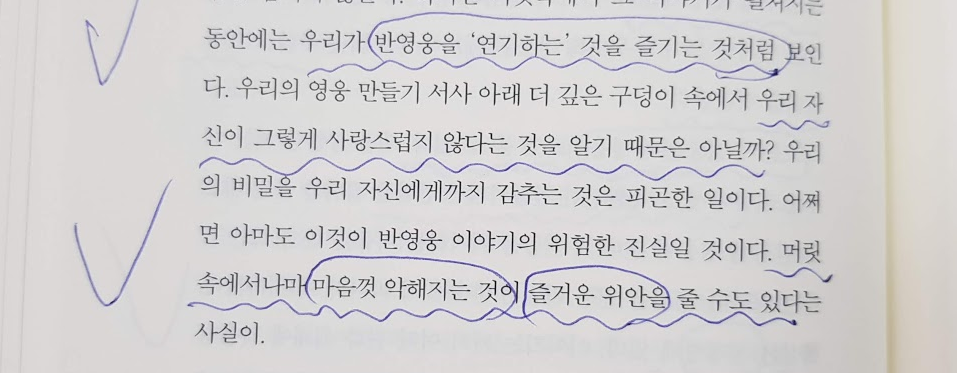 동안에는 우리가 반영웅을 ‘연기하는’ 것을 즐기는 것처럼 보인
다. 우리의 영웅 만들기 서사 아래 더 깊은 구덩이 속에서 우리 자
신이 그렇게 사랑스럽지 않다는 것을 알기 때문은 아닐까? 우리
의 비밀을 우리 자신에게까지 감추는 것은 피곤한 일이다. 어쩌
면 아마도 이것이 반영웅 이야기의 위험한 진실일 것이다. 머릿
속에서나마 마음껏 악해지는 것이 즐거운 위안을 줄 수도 있다는
사실이.